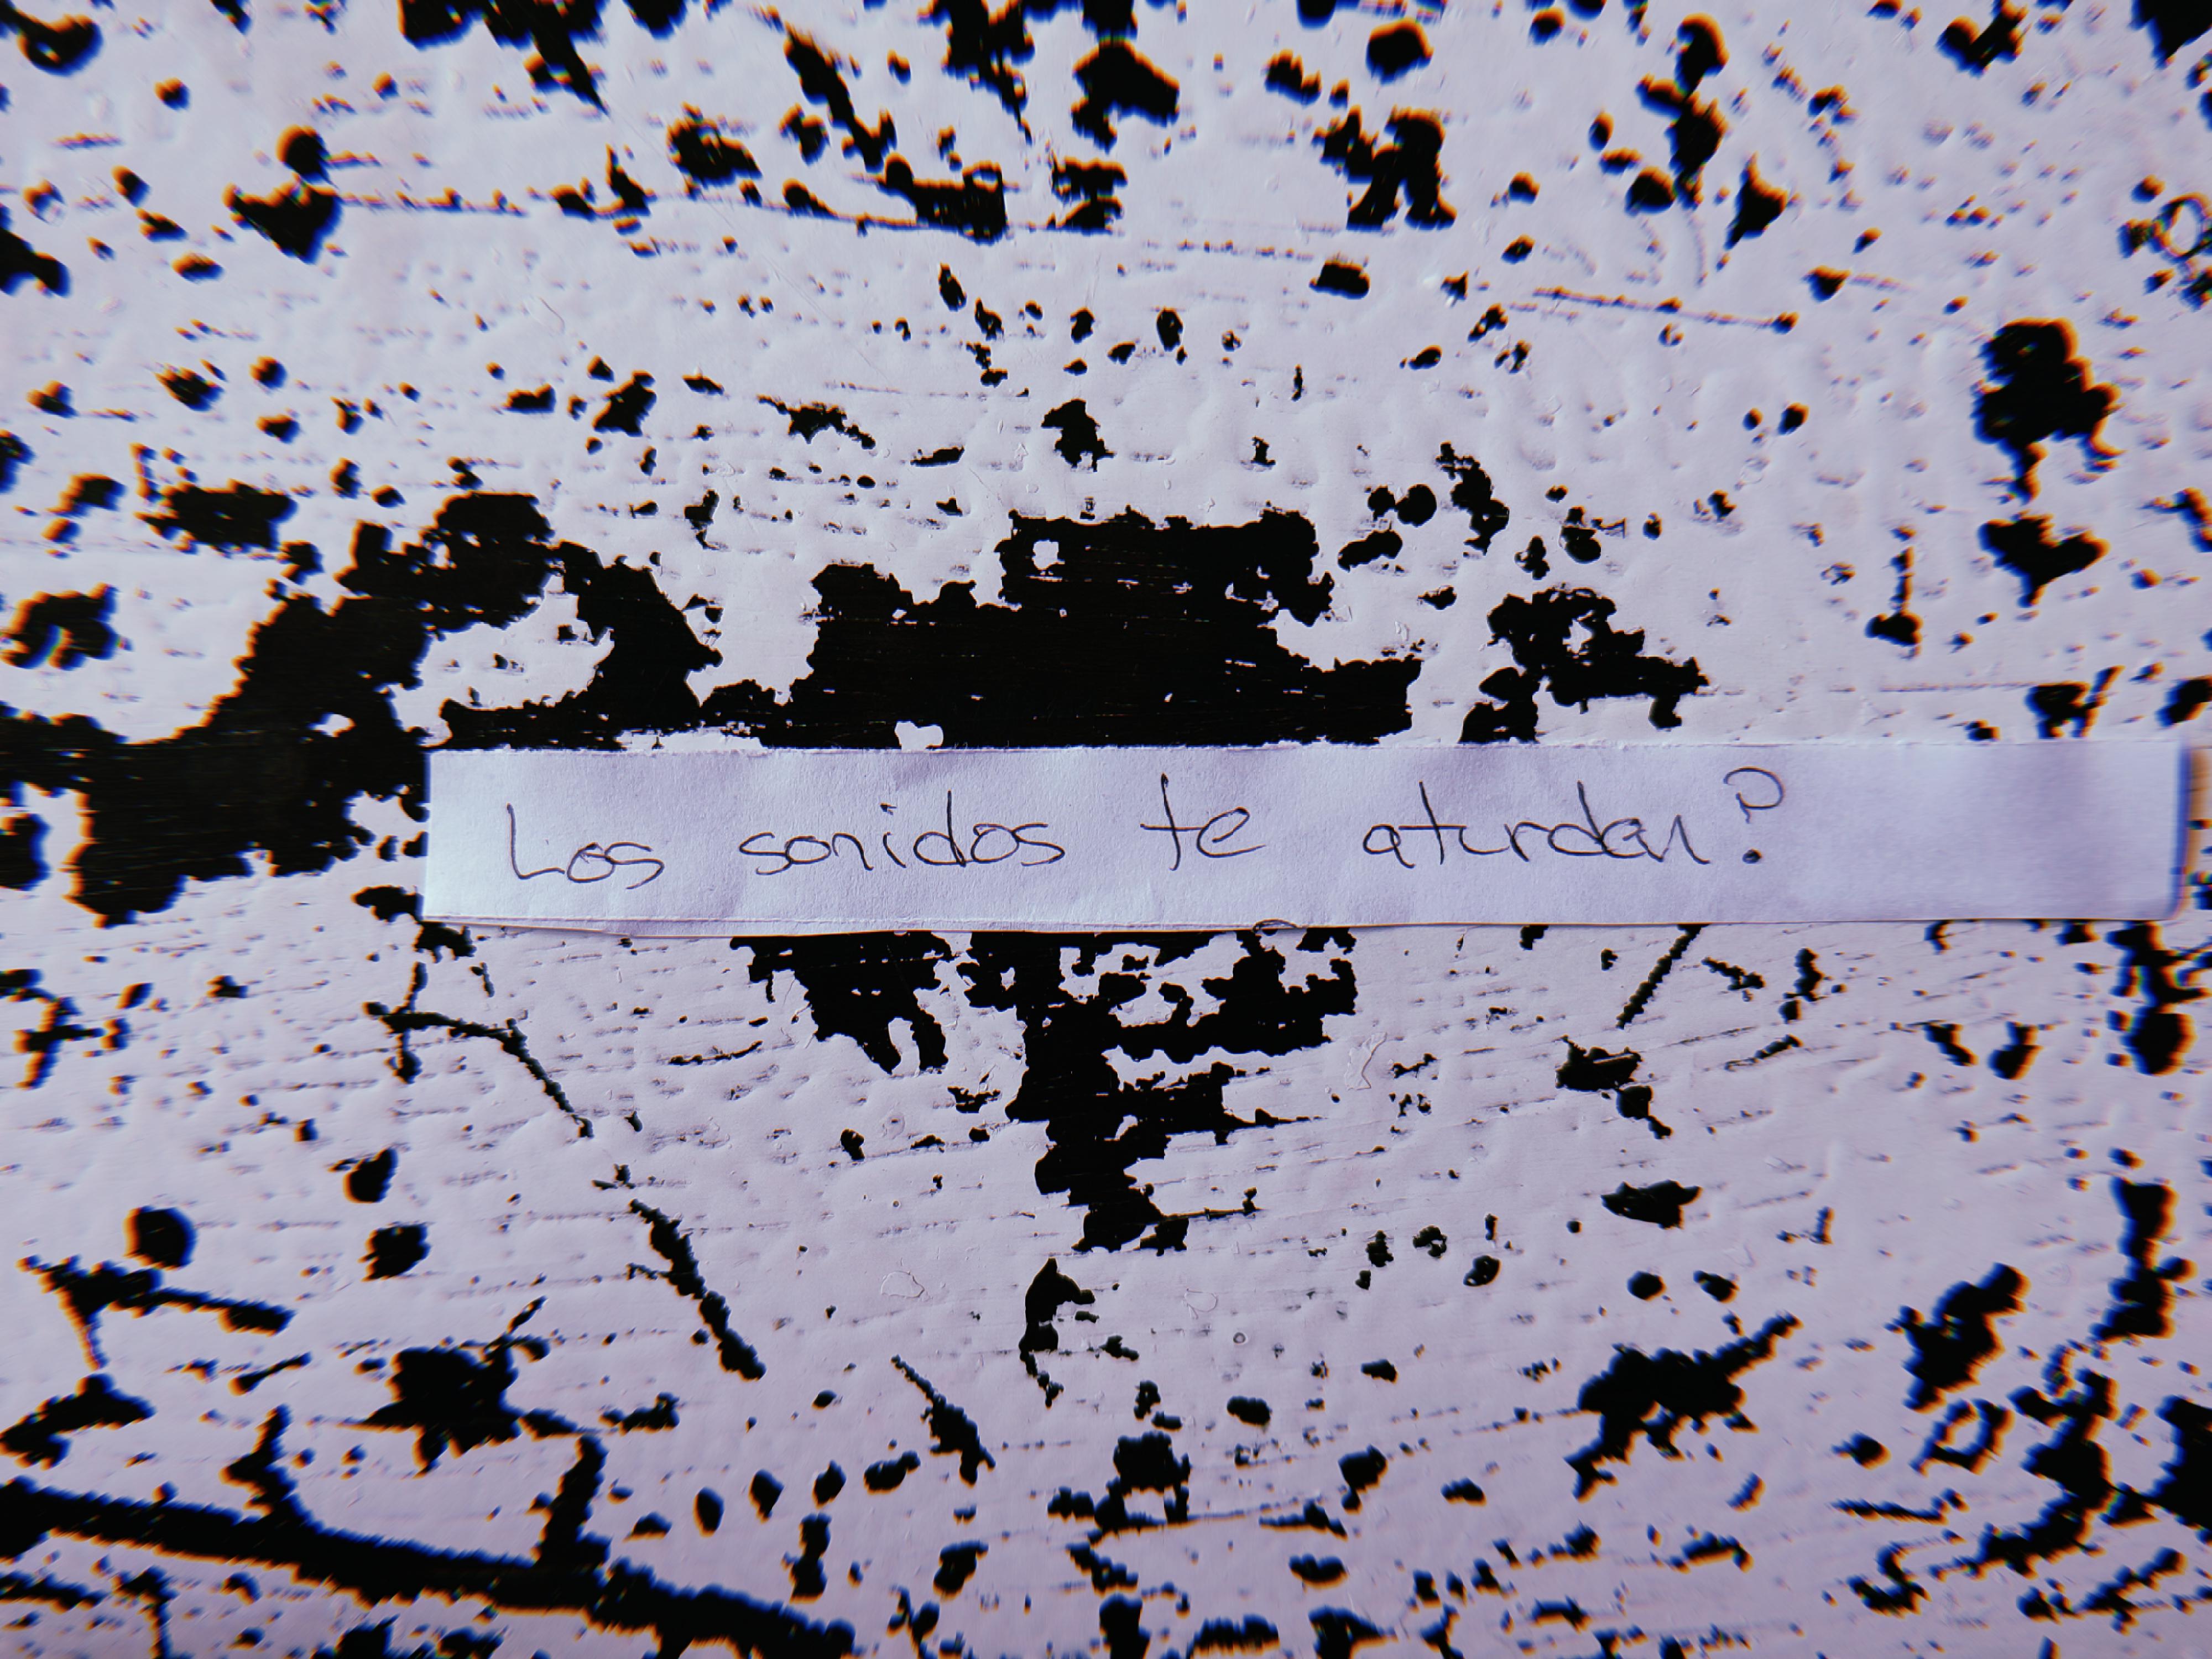 Los sonidos te aturden?